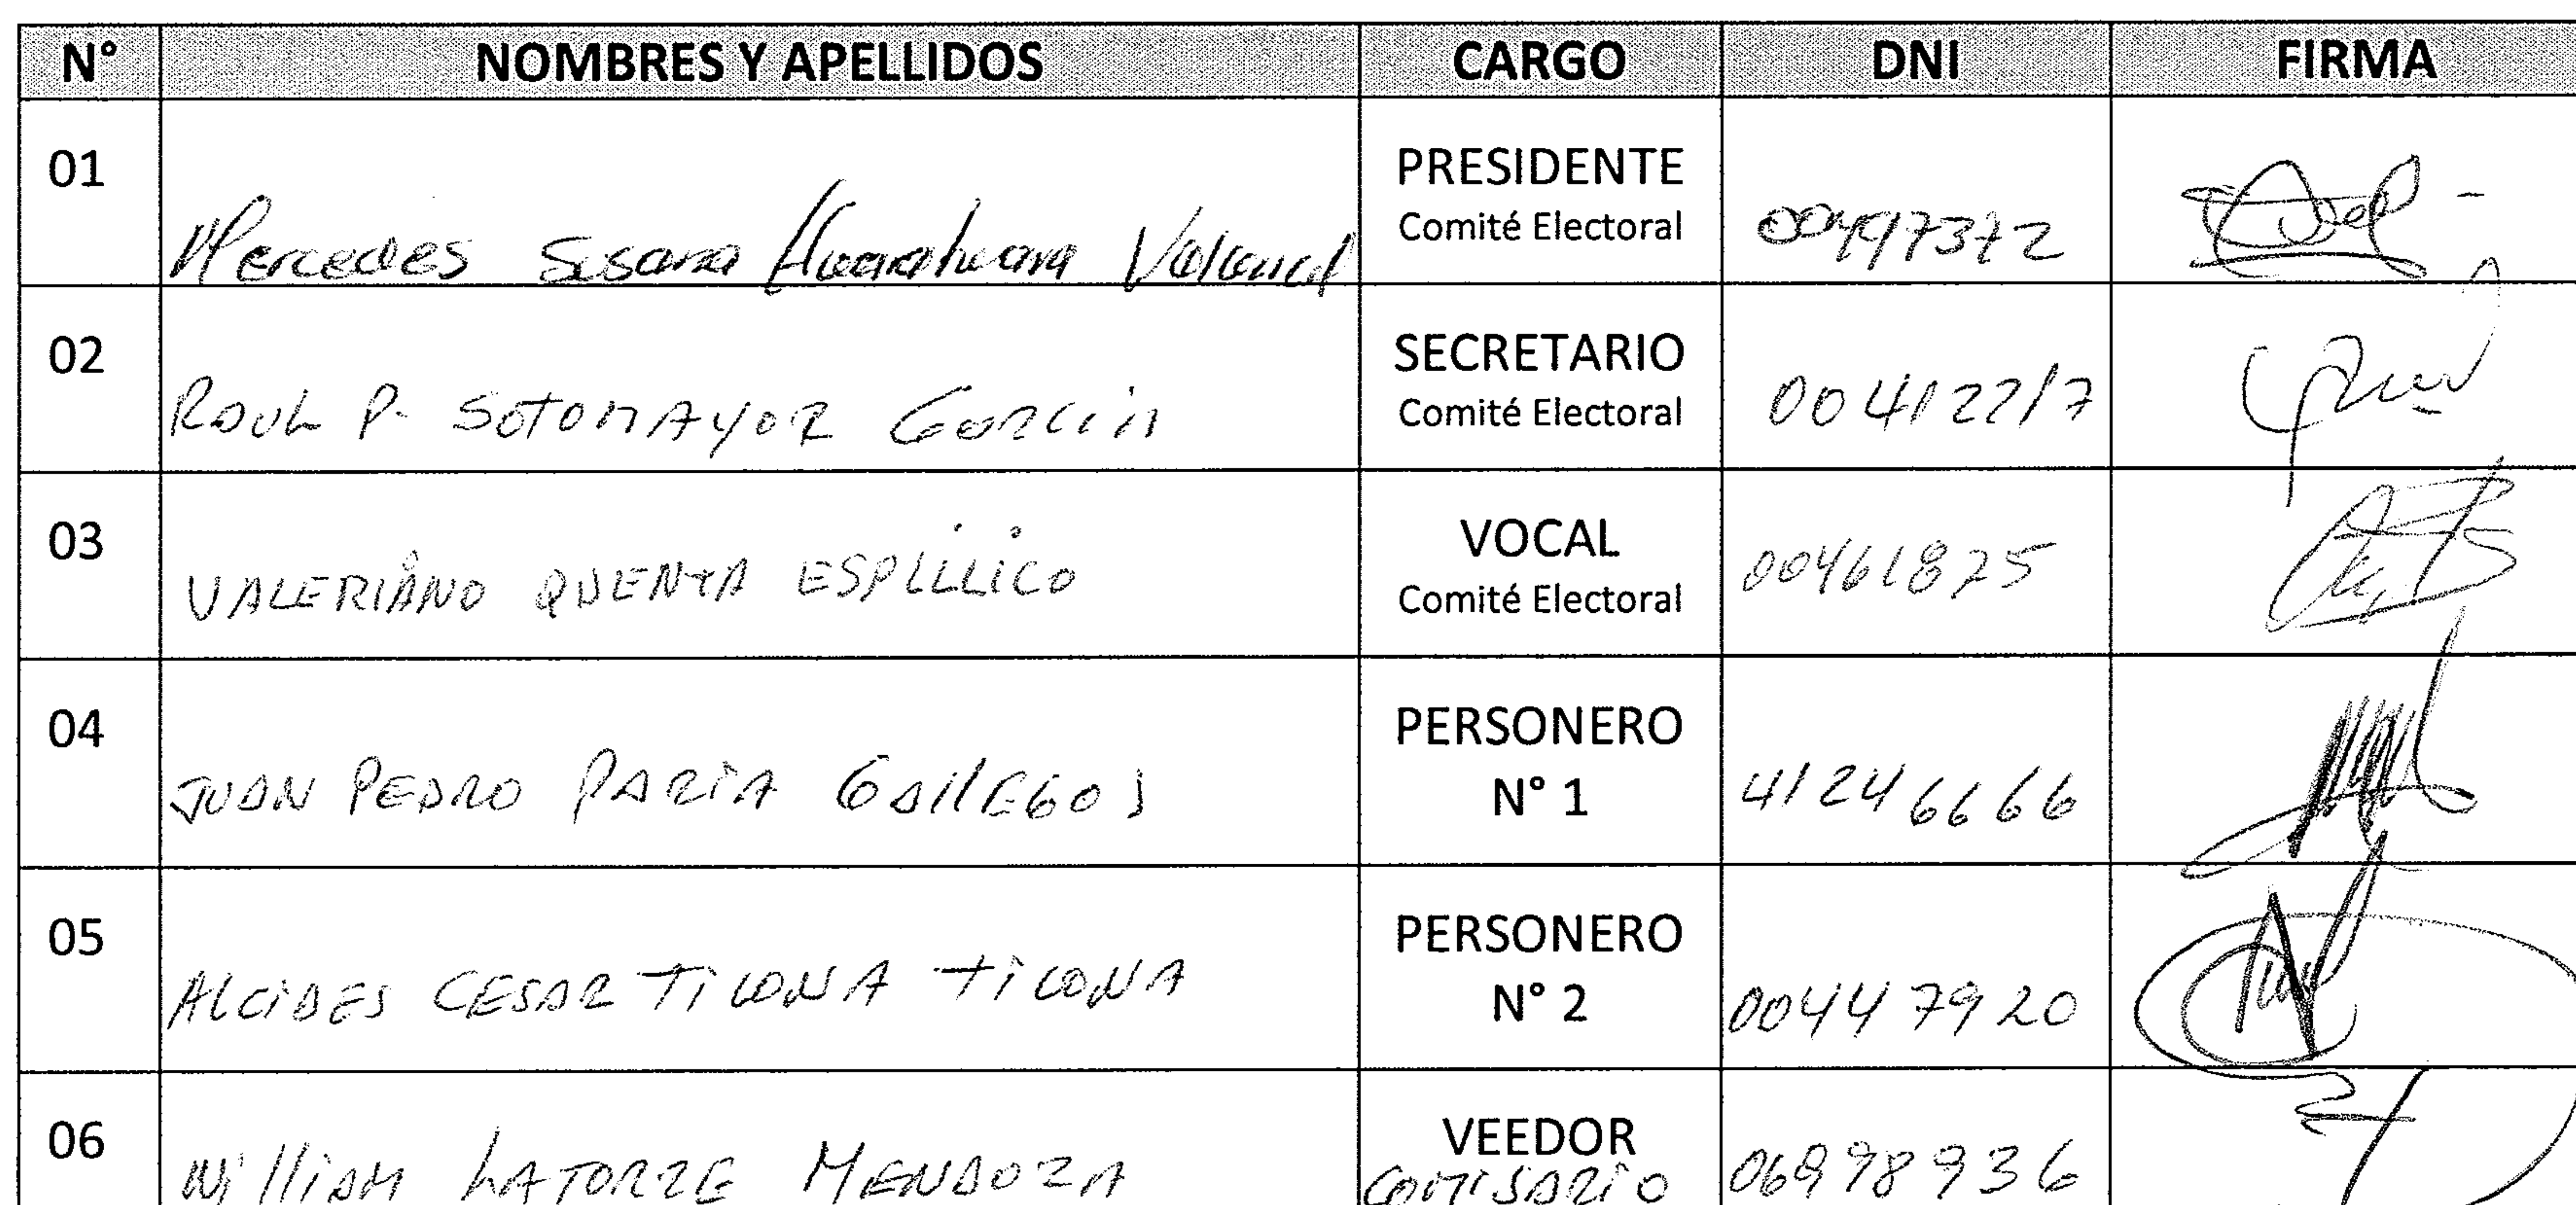 N° NOMBRES Y APELLIDOS CARGO DNI FIRMA
01 Mercedes Susana Huanahuana PRESIDENTE
Comité Electoral 00497372
02 RAUL P. SOTOMAYOR SECRETARIO
Comité Electoral 00412217
03 VALERIANO QUENTA ESPILLICO VOCAL
Comité Electoral 00461825
04 JUAN PEDRO PARIA GALLEGOS PERSONERO
N° 1 41246666
05 ALCIDES CESAR TICONA TICONA PERSONERO
N° 2 00447920
06 William LATORRE MENDOZA VEEDOR
COMISARIO 06998936